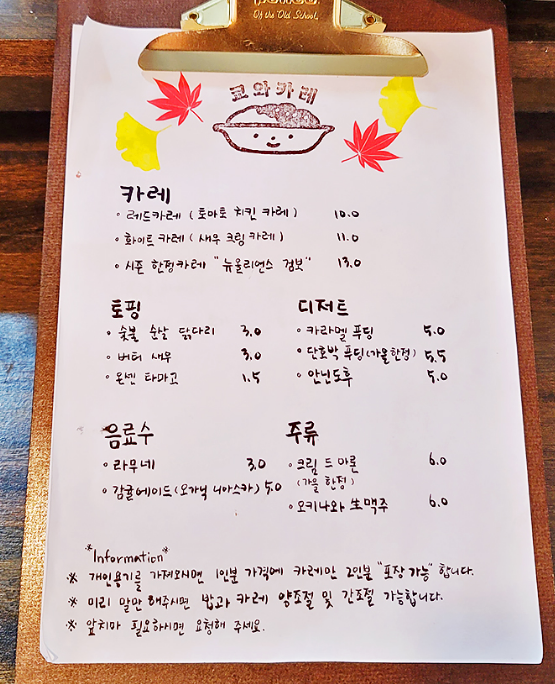 Of the Old School.
쿄와카레
카레
· 레드카레 ( 토마토 치킨 카레 ) 10.0
· 화이트 카레 ( 새우 크림 카레 ) 11.0
· 시즌 한정카레 "뉴올리언스 검보" 13.0
토핑
· 숯불 순살 닭다리 3.0
· 버터 새우 3.0
· 온센 타마고 1.5
디저트
· 카라멜 푸딩 5.0
· 단호박 푸딩(가을한정) 5.5
· 안닌도후 5.0
음료수
· 라무네 3.0
· 감귤에이드(오가닉 니아스카) 5.0
주류
· 크림 드 마론 6.0
(가을 한정)
· 오키나와 生맥주 6.0
*Information*
※ 개인용기를 가져와시면 1인분 가격에 카레만 2인분 "포장 가능" 합니다.
※ 미리 말만해주시면 밥과 카레 양조절 및 간조절 가능합니다.
※ 앞치마 필요하시면 요청해 주세요.